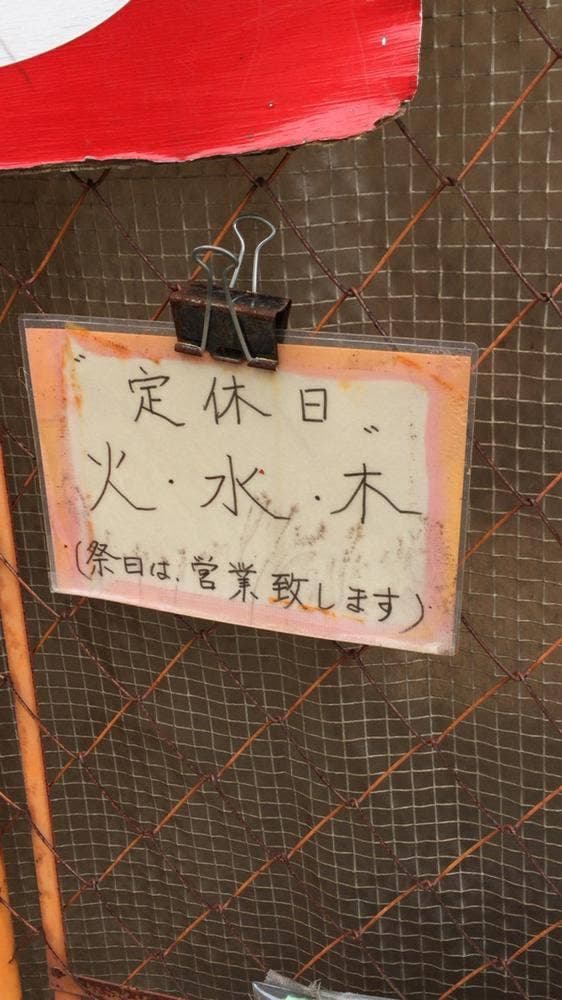 〝定休日〟
火・水・木
(祭日は、営業致します)